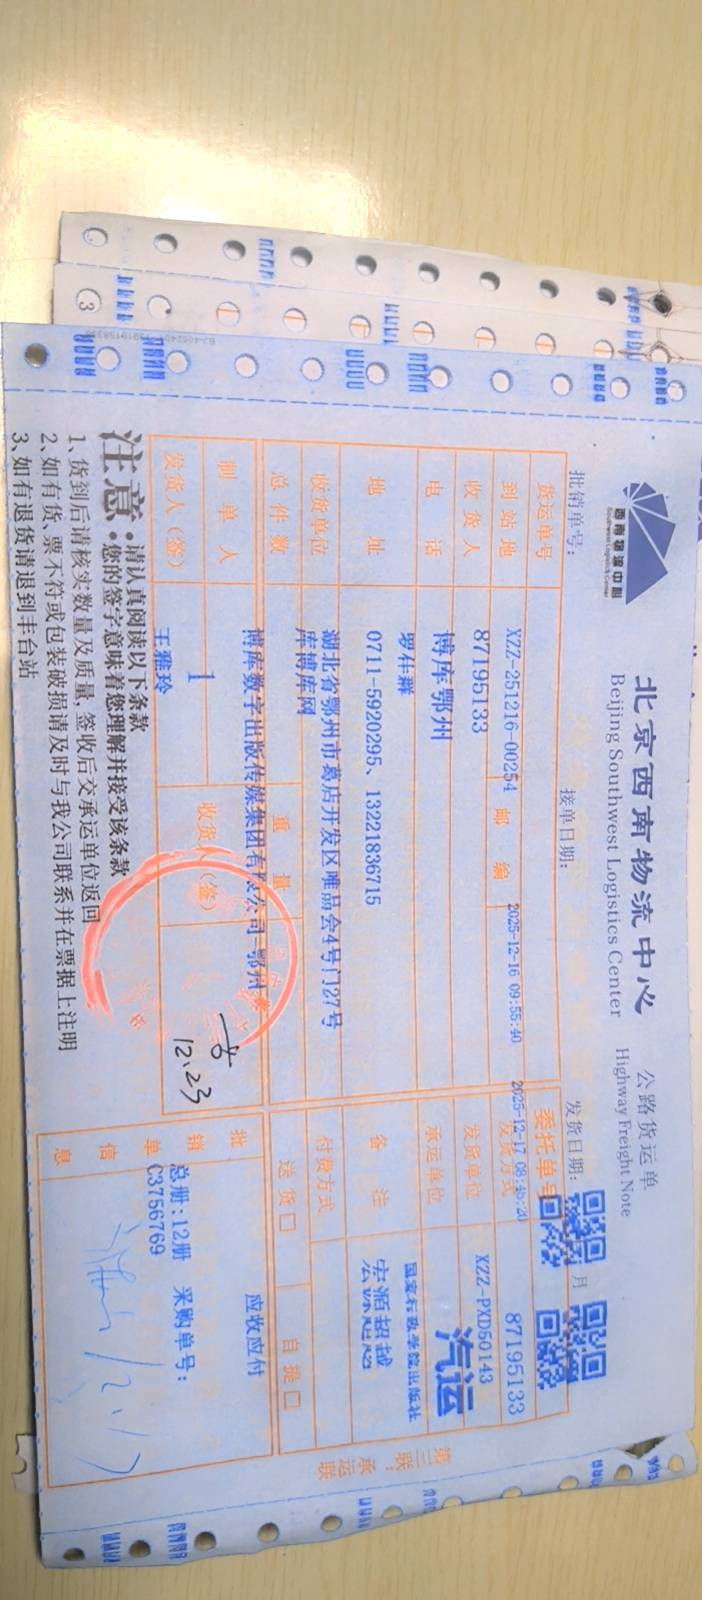 西南物流中心
Southwest Logistics Center
北京西南物流中心
Beijing Southwest Logistics Center
公路货运单
Highway Freight Note
批销单号：
接单日期：
发货日期：
月
货运单号
XZZ-251216-00254
2025-12-16 09:55:40
2025-12-17 08:45:20
委托单号
87195133
到站地
87195133
邮编
发货方式
XZZ-PXD50143
收货人
博库鄂州
发货单位
汽运
电话
罗佳群
承运单位
国家行政学院出版社
地址
0711-5920295、13221836715
备注
宏源超越
收货单位
湖北省鄂州市葛店开发区唯品会4号门27号
库博库网
付费方式
总件数
重量
送货口
自提口
博库数字出版传媒集团有限公司-鄂州
应收应付
制单人
1
收货人（签）
12.23
发货人（签）
王雅玲
批销单信息
总册:12册 采购单号:
C3756769
注意
•请认真阅读以下条款
•您的签字意味着您理解并接受该条款
1、货到后请核实数量及质量，签收后交承运单位返回
2、如有货、票不符或包装破损请及时与我公司联系并在票据上注明
3、如有退货请退到丰台站
第三联：承运联
3